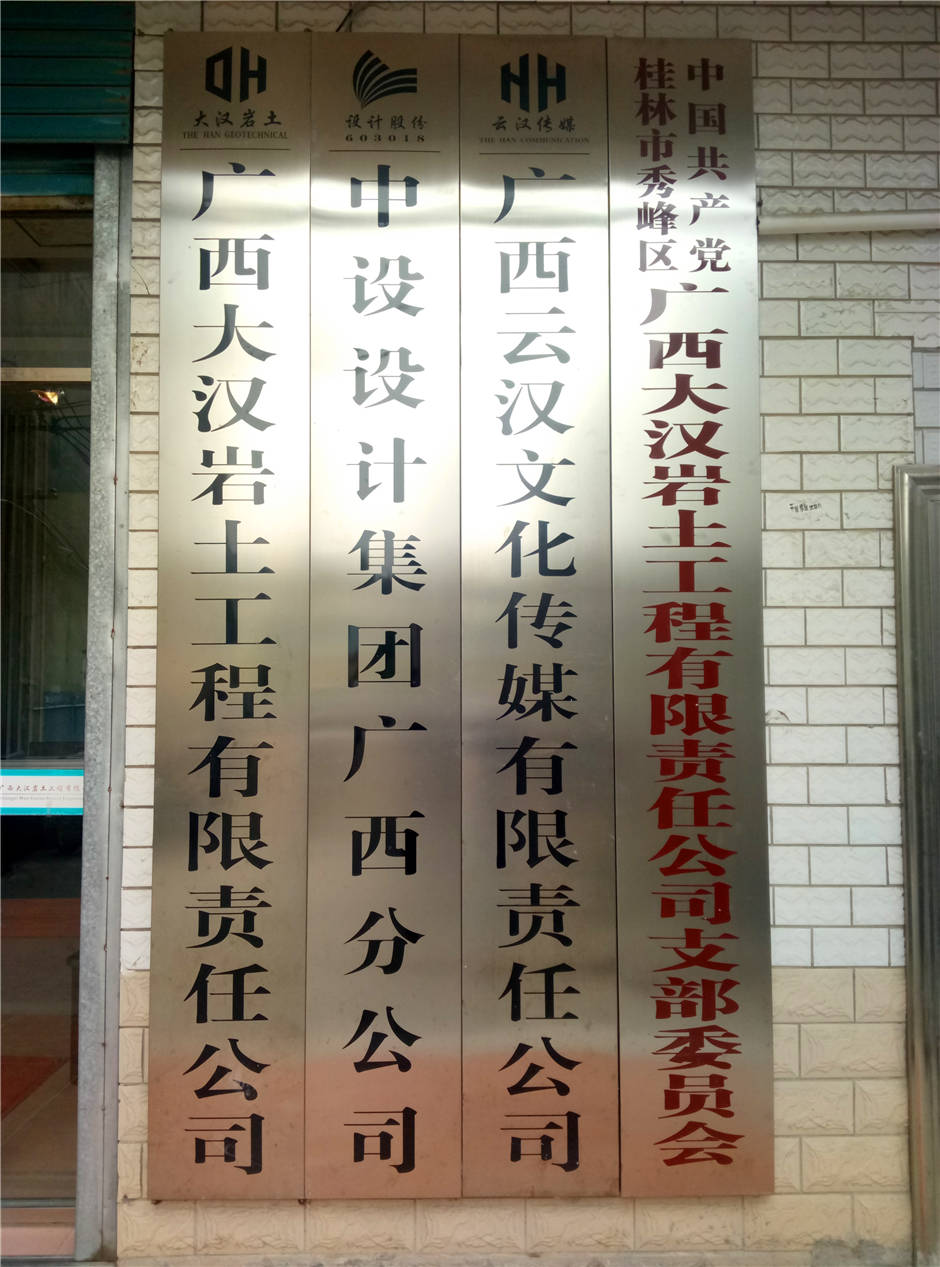 DH
大汉岩土
THE HAN GEOTECHNICAL
广西大汉岩土工程有限责任公司
设计股份
603018
中设设计集团广西分公司
NH
云汉传媒
THE HAN COMMUNICATION
广西云汉文化传媒有限责任公司
中国共产党
桂林市秀峰区
广西大汉岩土工程有限责任公司支部委员会
广西大汉岩土工程有限